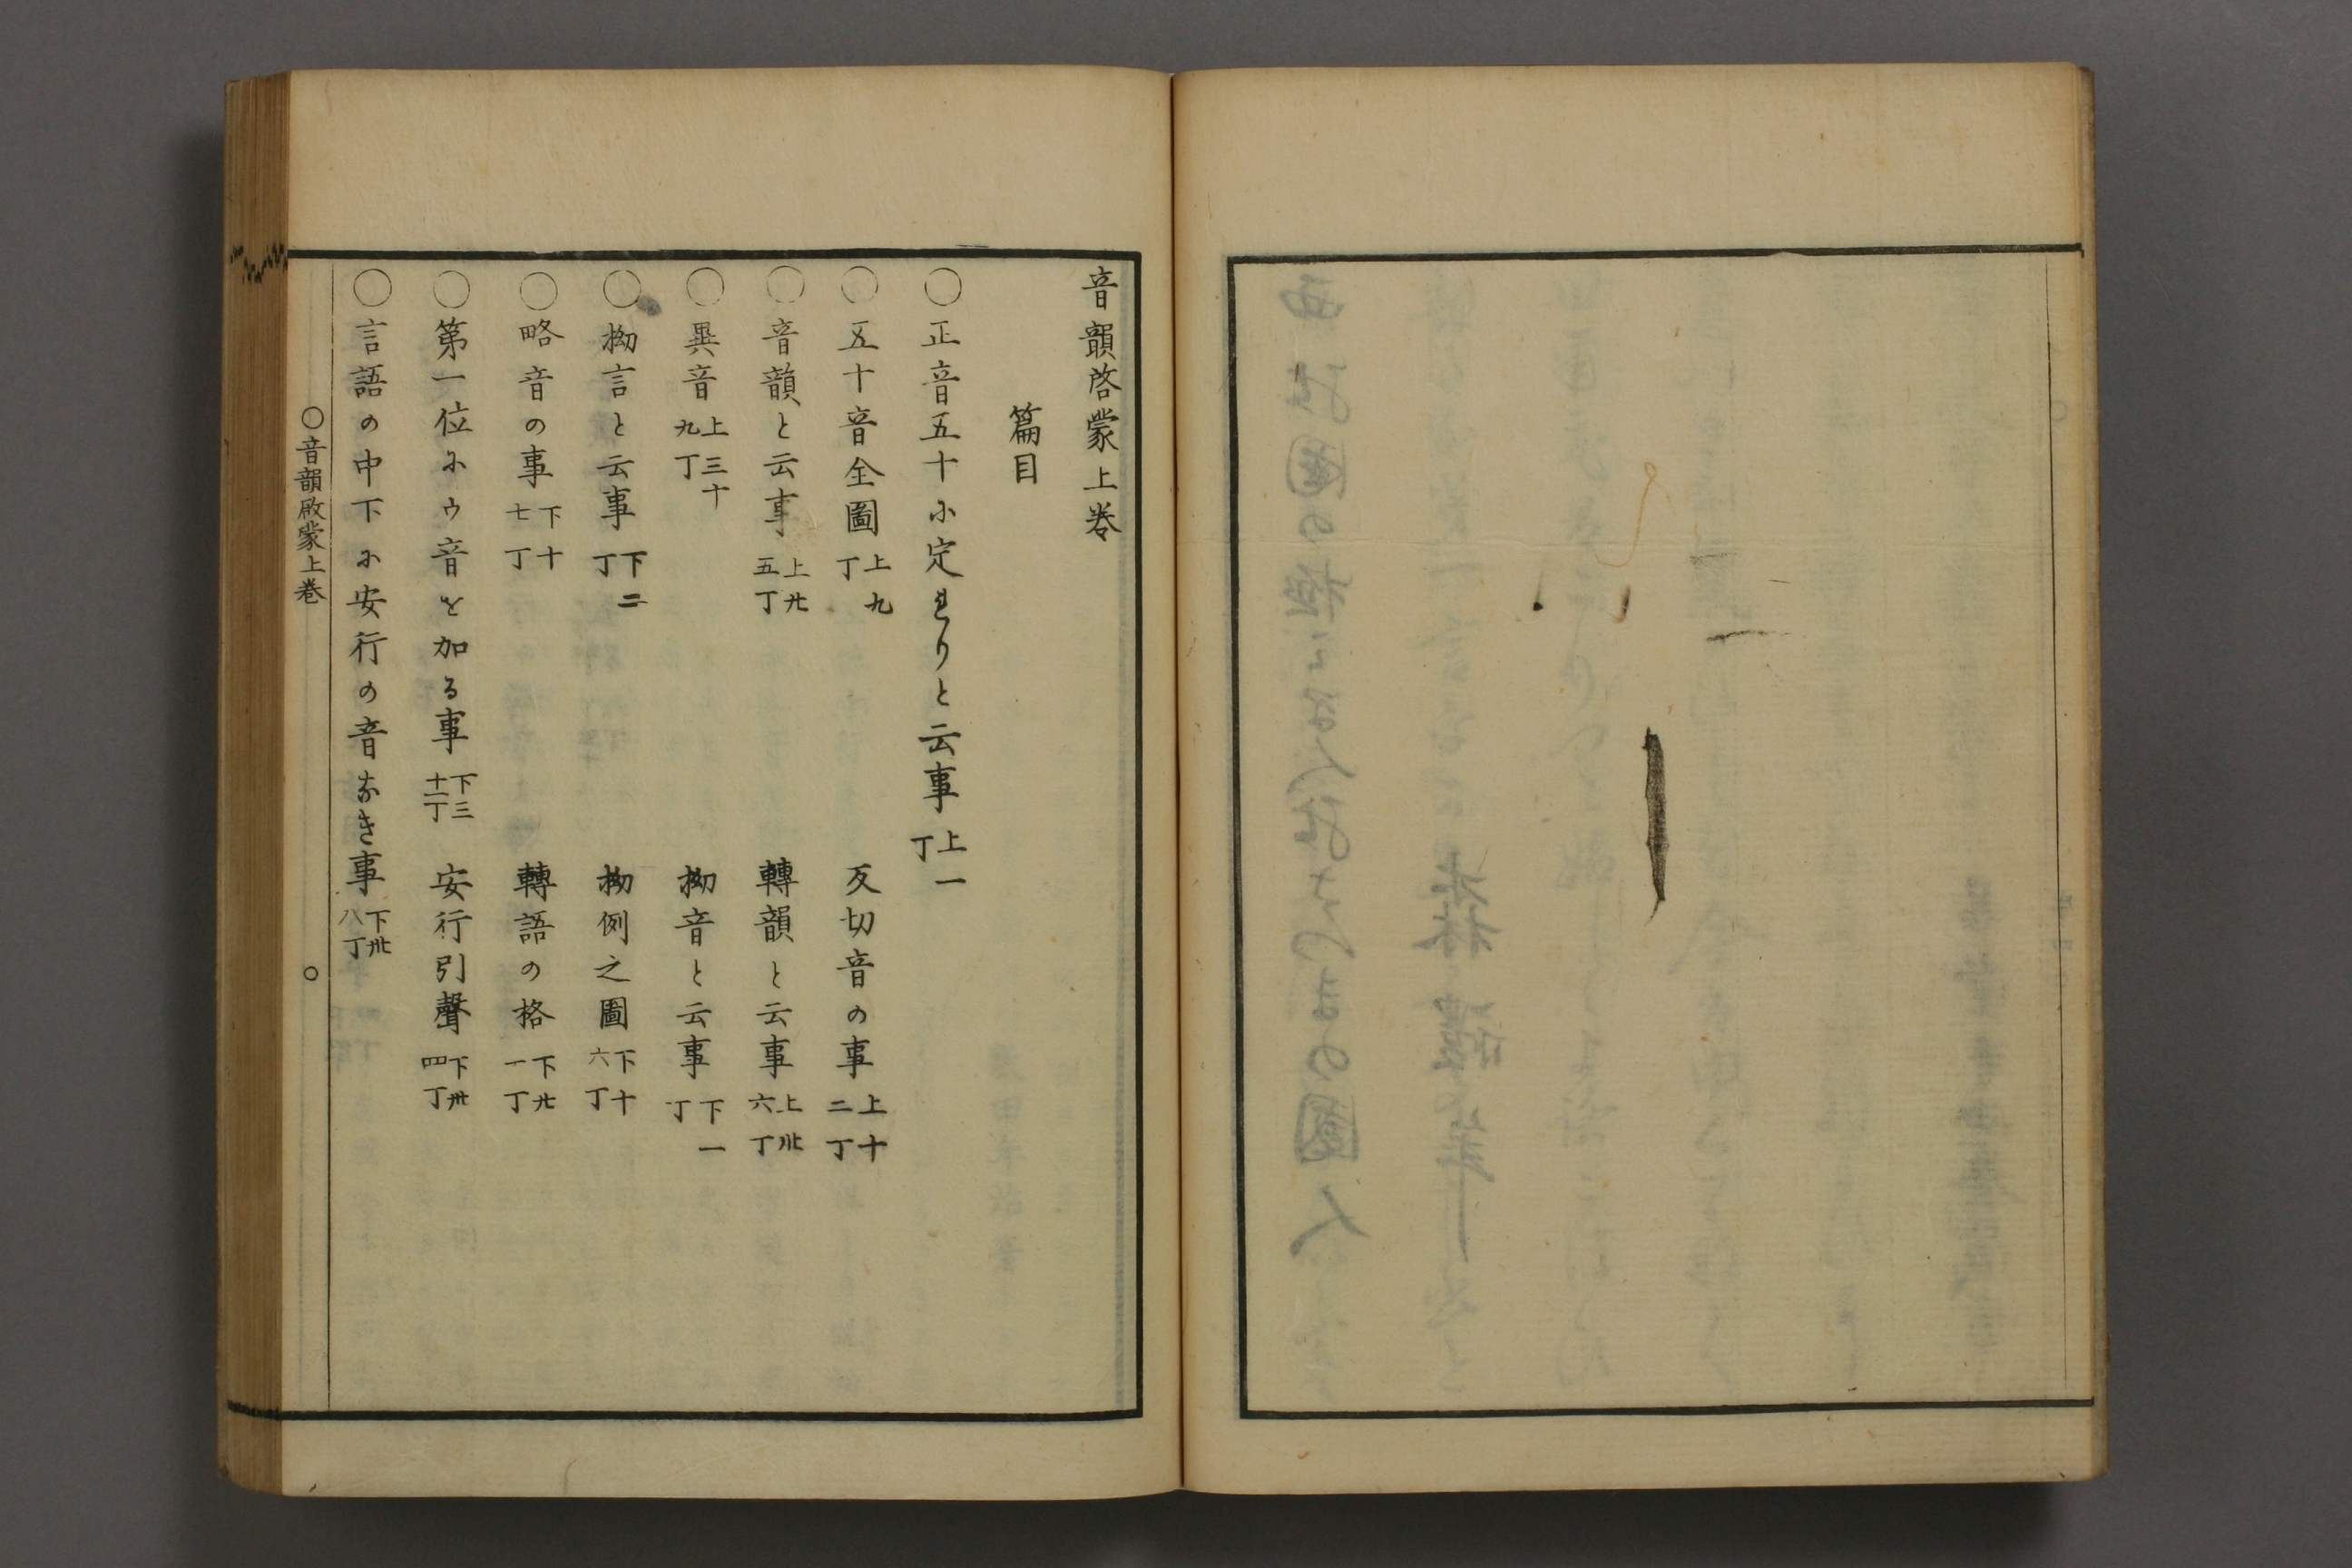 音韻啓蒙上巻
篇目
○正音五十に定れりと云事 上一丁
○五十音全圖 上九丁 反切音の事 上十二丁
○音韻と云事 上廿五丁 轉韻と云事 上卅六丁
○異音 上三十九丁 拗音と云事 下一丁
○拗言と云事 下二丁 拗例之圖 下十六丁
○略音の事 下十七丁 轉語の格 下廿一丁
○第一位にゥ音を加る事 下三十二丁 安行引聲 下卅四丁
○言語の中下に安行の音なき事 下卅八丁
○音韻啟蒙上巻 ○